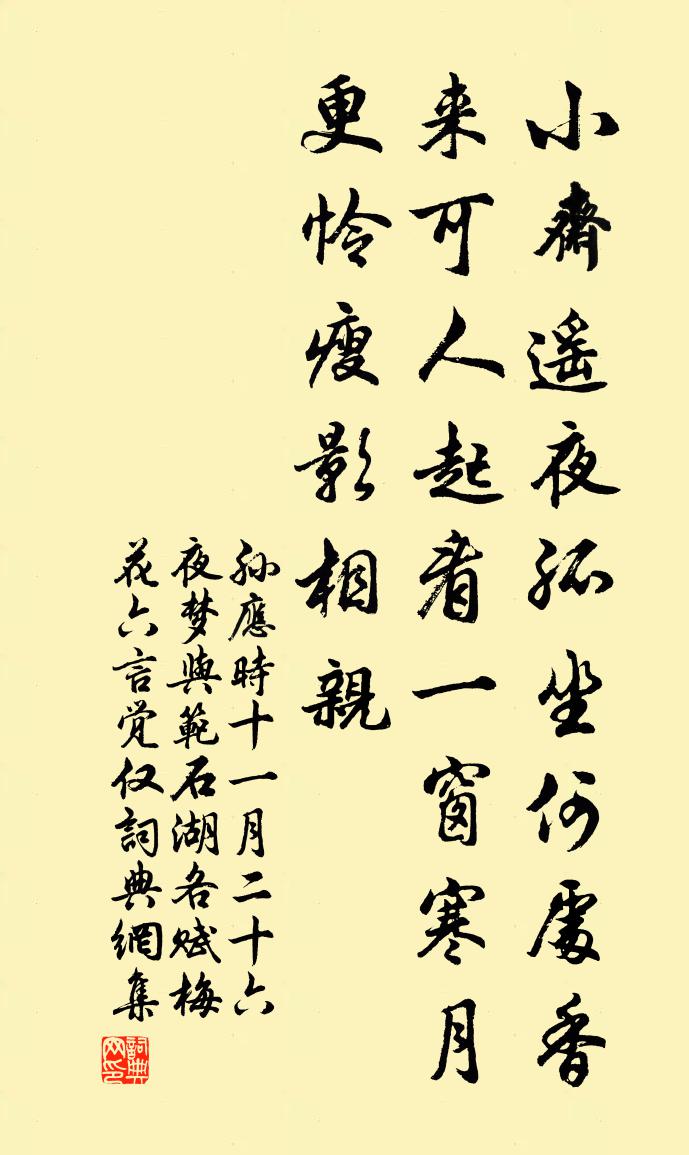 小齋遥夜孤坐何處香
来可人起看一窗寒月
更怜瘦影相親
孙應時十一月二十六
夜梦與範石湖各赋梅
花六言觉仅詞典網集
詞典网印